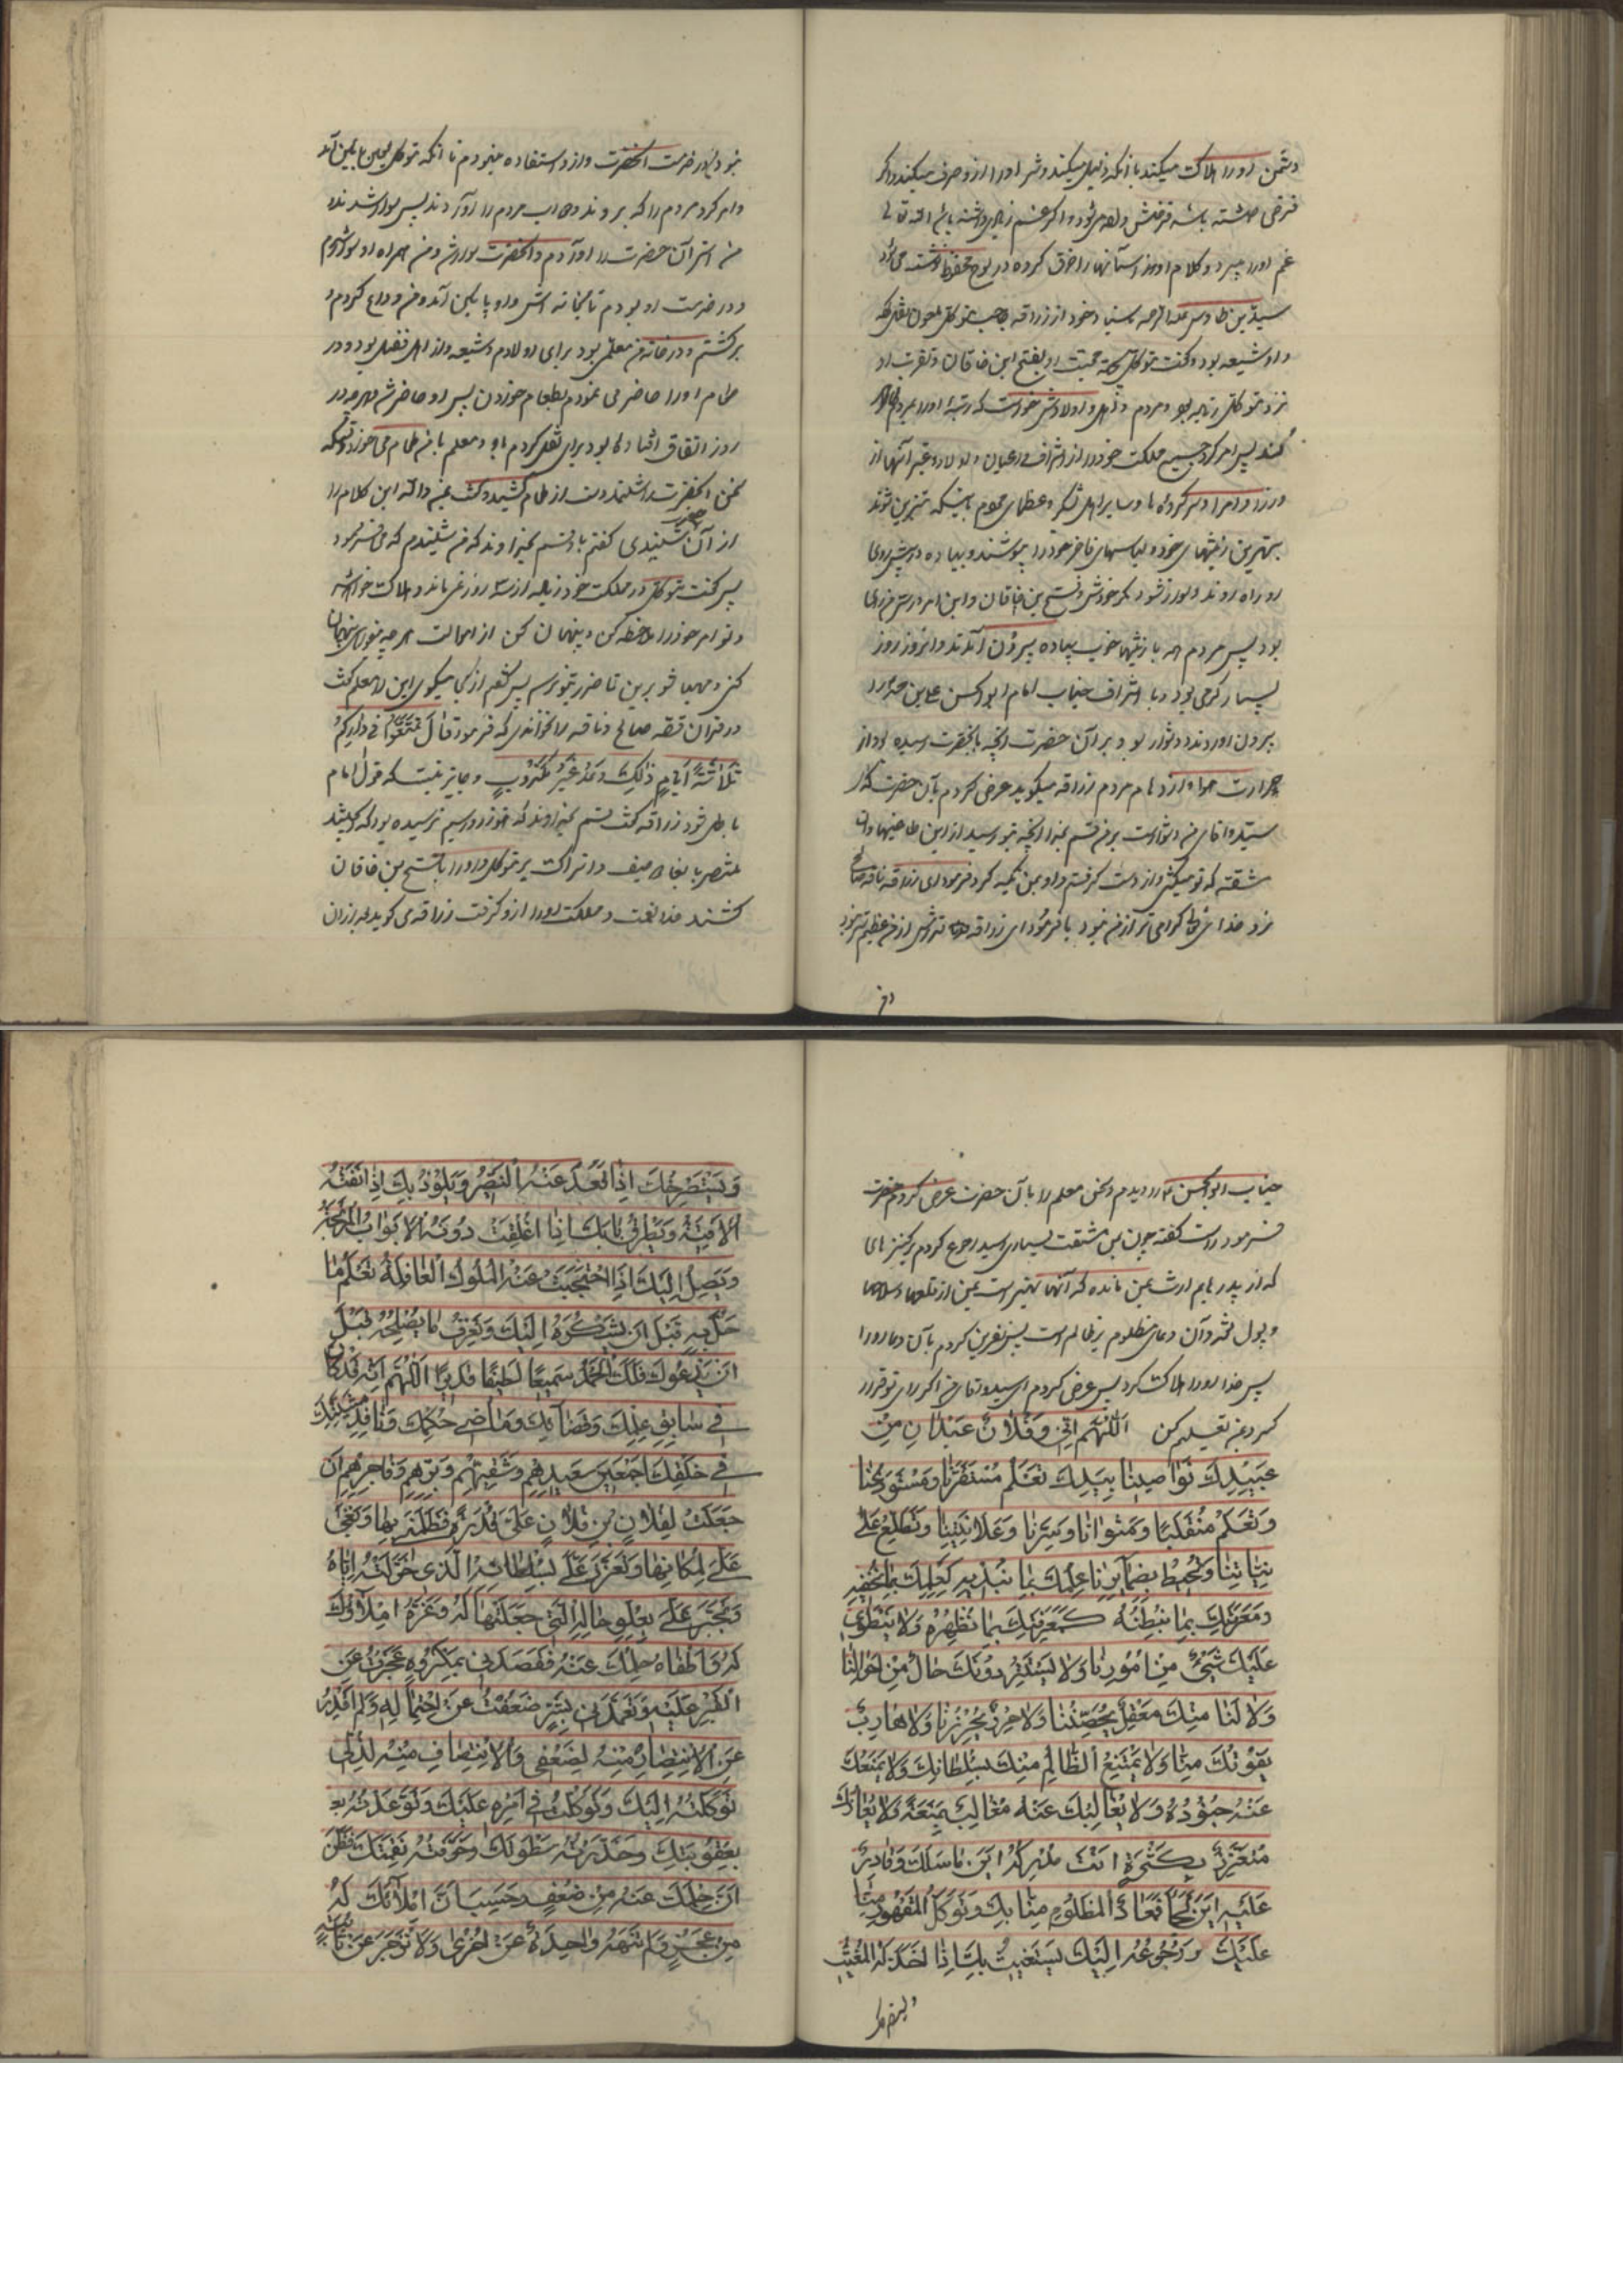 دشمن او را هلاک میکند یا آنکه ذلیل میکند و شر او را از او صرف میکند و اگر
قرضی داشته باشد قرضش ادا میشود و اگر غم
غم او را میبرد و کلام او آسمانها را خرق کرده در لوح محفوظ نوشته می شود
سید بن طاوس علیه الرحمه باسناد خود از زراقه حاجب متوکل
و او شیعه بود گفت متوکل بجهة محبت او بفتح ابن خاقان و تقرب او
نزد متوکل زیاده بود مردم و اهل و اولادش خواست که رتبه او را بمردم
کند پس امر کرد جمیع مملکت خود را از اشراف و اعیان و اولاد و غیر آنها از
وزرا و امرا و سرکردها و سایر اهل لشکر و عظمای مردم باینکه مزین شوند
بهترین زینتهای خود و لباسهای فاخر خود را بپوشند و پیاده در پیش روی
او راه روند و سوار نشود مگر خودش و فتح بن خاقان و این امر در سر من رای
بود پس مردم همه با زینتهای خوب پیاده بیرون آمدند و آنروز روز
بسیار گرمی بود و با اشراف جناب امام ابو الحسن علی بن محمد را
بیرون آوردند و دشوار بود بر آن حضرت آنچه بآنحضرت رسیده بود از
حرارت هوا و ازدحام مردم زراقه میگوید عرض کردم بآن حضرت که ای
سید و آقای من دشوار است بر من قسم بخدا آنچه بتو رسید از این طاغیها و آن
مشقته که تو میکشی و از دست گرفتم و او بمن تکیه کرد فرمود ای زراقه ناقه صالح
نزد خدای تعالی گرامی تر از من نبود یا فرمود ای زراقه
و من
نبود و در خدمت آنحضرت و از او استفاده مینمودم تا آنکه متوکل پایین آمد
و امر کرد مردم را که بروند و دواب مردم را آوردند پس سوار شدند و
من استر آن حضرت را آوردم و آنحضرت سوار شد و من همراه او سوار شدم
و در خدمت او بودم تا بخانه اش و او پایین آمد و من وداع کردم و
برگشتم و در خانه من معلمی بود برای اولادم و شیعه و از اهل فضل بود و در
طعام او را حاضر می نمودم بطعام خوردن پس او حاضر شد و هر چه در
روز اتفاق افتاده بود برای نقل کردم باو و معلم با من طعام می خورد وقتیکه
سخن آنحضرت را شنید دست از طعام کشید و گفت بخدا والله این کلام را
از آن حضرت شنیدی گفتم باو قسم بخداوند که من شنیدم که می فرمود
پس گفت متوکل در مملکت خود زیاده از سه روز نمی ماند و هلاک خواهد شد
و تو امر خود را ملاحظه کن و پنهان کن از اموالت هر چه میتوانی پنهان
کنی و مهیا شو برین تا ضرر بتو نرسد پس گفتم از کجا میگویی این را معلم گفت
در قرآن قصه صالح و ناقه را نخوانده ای که فرمود فقال تَمَتَّعُوا فی دارِکُم
ثَلاثَةَ اَیّامٍ ذٰلِكَ وَعْدٌ غَیْرُ مَکْذُوبٍ و جایز نیست که قول امام
باطل شود زراقه گفت قسم بخداوند که هنوز روز سیم نرسیده بود که
منتصر با بغا و وصیف و اتراک بر متوکل و او را با فتح بن خاقان
کشتند خدا نعمت و مملکت او را از او گرفت زراقه می گوید بعد از آن
جناب ابو الحسن را دیدم و سخن معلم را بآن حضرت عرض کردم حضرت
فرمود راست گفته چون بمن مشقت بسیاری رسید رجوع کردم بر گنج های
که از پدرهایم ارث بمن مانده که آنها بهتر است بمن از قلعها و سلاحها
و پول و آن دعای مظلوم بر ظالم است پس نفرین کردم بآن دعا او را
پس خدا او را هلاک کرد پس عرض کردم ای سید و آقای من اگر رای تو قرار
گیرد بمن تعلیم کن اَللّٰهُمَّ اِنّی وَفُلانٌ عَبْدانِ مِنْ
عَبیدِكَ نَواصینا بِیَدِكَ تَعْلَمُ مُسْتَقَرَّنا وَمُسْتَوْدَعَنا
وَتَعْلَمُ مُنْقَلَبَنا وَمَثْوانا وَسِرَّنا وَعَلانِیَتَنا وَتَطَّلِعُ عَلی
نِیّاتِنا وَتُحیطُ بِضَمآئِرِنا عِلْمُكَ بِما نُبْدیهِ کَعِلْمِكَ بِما نُخْفیهِ
وَمَعْرِفَتُكَ بِما نُبْطِنُهُ کَمَعْرِفَتِكَ بِما نُظْهِرُهُ وَلا یَنْطَوی
عَلَیْكَ شَیْءٌ مِنْ اُمُورِنا وَلا یَسْتَتِرُ دُونَكَ حالٌ مِنْ اَحْوالِنا
وَلا لَنا مِنْكَ مَعْقِلٌ یُحَصِّنُنا وَلا حِرْزٌ یُحْرِزُنا وَلا هارِبٌ
یَفُوتُكَ مِنّا وَلا یَمْتَنِعُ الظّالِمُ مِنْكَ بِسُلْطانِكَ وَلا یَمْنَعُكَ
عَنْهُ جُنُودُهُ وَلا یُغالِبُكَ عَنْهُ مُغالِبٌ بِمَنَعَةٍ وَلا یُعازُّكَ
مُتَعَزِّزٌ بِکَثْرَةٍ اَنْتَ مُدْرِکُهُ اَیْنَ ما سَلَكَ وَقادِرٌ
عَلَیْهِ اَیْنَ لَجَأَ فَمَعاذُ الْمَظْلُومِ مِنّا بِكَ وَتَوَکُّلُ الْمَقْهُورِ مِنّا
عَلَیْكَ وَرُجُوعُهُ اِلَیْكَ یَسْتَغیثُ بِكَ اِذا خَذَلَهُ الْمُغیثُ
وَیَسْتَصْرِخُكَ اِذا قَعَدَ عَنْهُ النَّصیرُ وَیَلُوذُ بِكَ اِذا نَفَتْهُ
الْاَفْنِیَةُ وَیَطْرُقُ بابَكَ اِذا اُغْلِقَتْ دُونَهُ الْاَبْوابُ الْمُرْتَجَةُ
وَیَصِلُ اِلَیْكَ اِذَا احْتَجَبَتْ عَنْهُ الْمُلُوكُ الْغافِلَةُ تَعْلَمُ ما
حَلَّ بِهِ قَبْلَ اَنْ یَشْکُوَهُ اِلَیْكَ وَتَعْرِفُ ما یُصْلِحُهُ قَبْلَ
اَنْ یَدْعُوَكَ فَلَكَ الْحَمْدُ سَمیعًا لَطیفًا قَدیرًا اَللّٰهُمَّ اِنَّهُ قَدْ کانَ
فی سابِقِ عِلْمِكَ وَقَضآئِكَ وَماضی حُکْمِكَ وَنافِذِ مَشِیَّتِكَ
فی خَلْقِكَ اَجْمَعینَ سَعیدِهِمْ وَشَقِیِّهِمْ وَبَرِّهِمْ وَفاجِرِهِمْ اَنْ
جَعَلْتَ لِفُلانِ بْنِ فُلانٍ عَلَیَّ قُدْرَةً فَظَلَمَنی بِها وَبَغی
عَلَیَّ لِمَکانِها وَتَعَزَّزَ عَلَیَّ بِسُلْطانِهِ الَّذی خَوَّلْتَهُ اِیّاهُ
وَتَجَبَّرَ عَلَیَّ بِعُلُوِّ حالِهِ الَّتی جَعَلْتَها لَهُ وَغَرَّهُ اِمْلآؤُكَ
لَهُ وَاَطْغاهُ حِلْمُكَ عَنْهُ فَقَصَدَنی بِمَکْرُوهٍ عَجَزْتُ عَنِ
الصَّبْرِ عَلَیْهِ وَتَعَمَّدَنی بِشَرٍّ ضَعُفْتُ عَنِ احْتِمالِهِ وَلَمْ اَقْدِرْ
عَنِ الْاِنْتِصارِ مِنْهُ لِضَعْفی وَالْاِنْتِصافِ مِنْهُ لِذُلّی
فَوَکَلْتُهُ اِلَیْكَ وَتَوَکَّلْتُ فی اَمْرِهِ عَلَیْكَ وَتَوَعَّدْتُهُ
بِعُقُوبَتِكَ وَحَذَّرْتُهُ سَطْوَتَكَ وَخَوَّفْتُهُ نَقِمَتَكَ فَظَنَّ
اَنَّ حِلْمَكَ عَنْهُ مِنْ ضَعْفٍ وَحَسِبَ اَنَّ اِمْلآئَكَ لَهُ
مِنْ عَجْزٍ وَلَمْ تَنْهَهُ واحِدَةٌ عَنْ اُخْری وَلَا انْزَجَرَ عَنْ ثانِیَةٍ